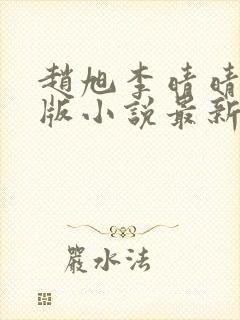 趙旭李晴晴
版小說最新
嚴水法